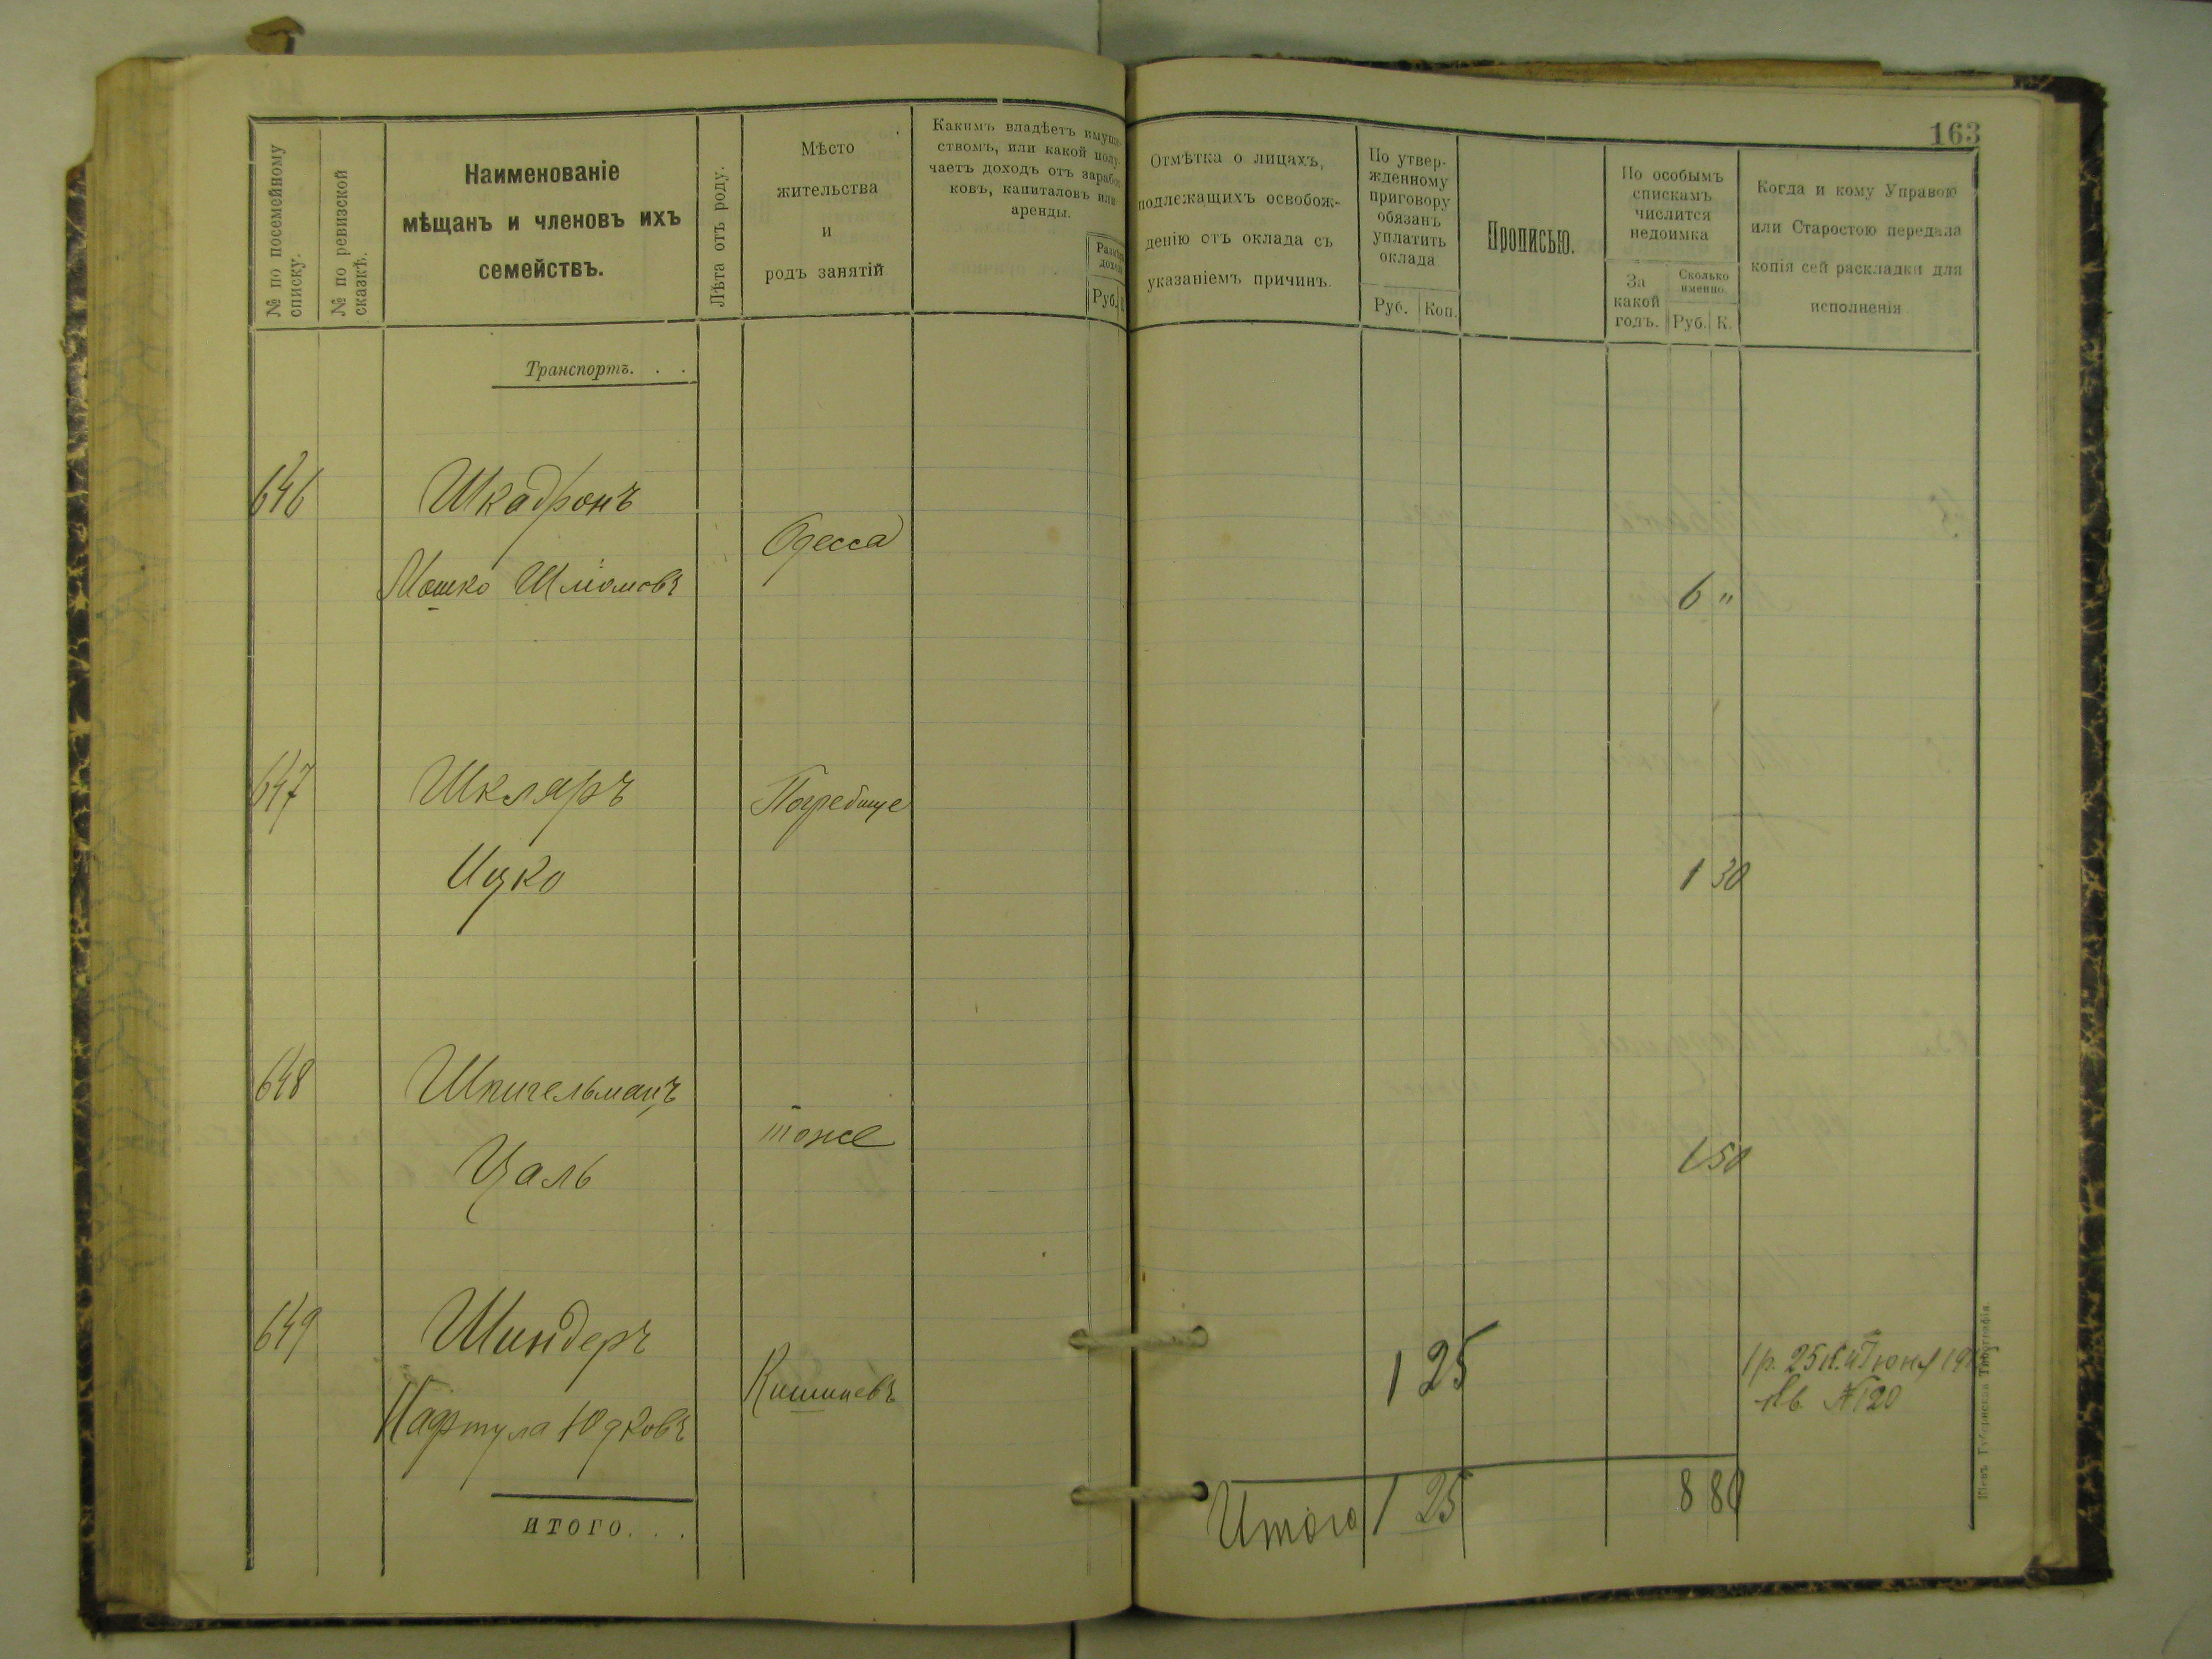 163
№ по посемейному
списку.
№ по ревизской
сказкѣ.
Наименованіе
мѣщанъ и членовъ ихъ
семействъ.
Лѣта отъ роду.
Мѣсто
жительства
и
родъ занятій
Какимъ владѣетъ имуще-
ствомъ, или какой полу-
чаетъ доходъ отъ зарабо-
ковъ, капиталовъ или
аренды.
Руб.
Отмѣтка о лицахъ,
подлежащихъ освобож-
денію отъ оклада съ
указаніемъ причинъ.
По утвер-
жденному
приговору
обязанъ
уплатить
оклада
Руб. Коп.
Прописью.
По особымъ
спискамъ
числится
недоимка
За
какой
годъ.
Сколько
именно.
Руб. К.
Когда и кому Управою
или Старостою передана
копія сей раскладки для
исполненія
Транспортъ. . .
646 Шкадронъ
Одесса
Мошко Шліомовъ 6 "
647 Шкляръ Погребище
Ицко 1 30
648 Шпигельманъ
тоже
Цаль 1 50
649 Шиндеръ
Кишиневъ 1 25 1 р. 25 к. Іюня
Нафтула Юдковъ Кв. № 120
итого. . .
Итого 1 25 8 80
Кіевъ Губернская Типографія.